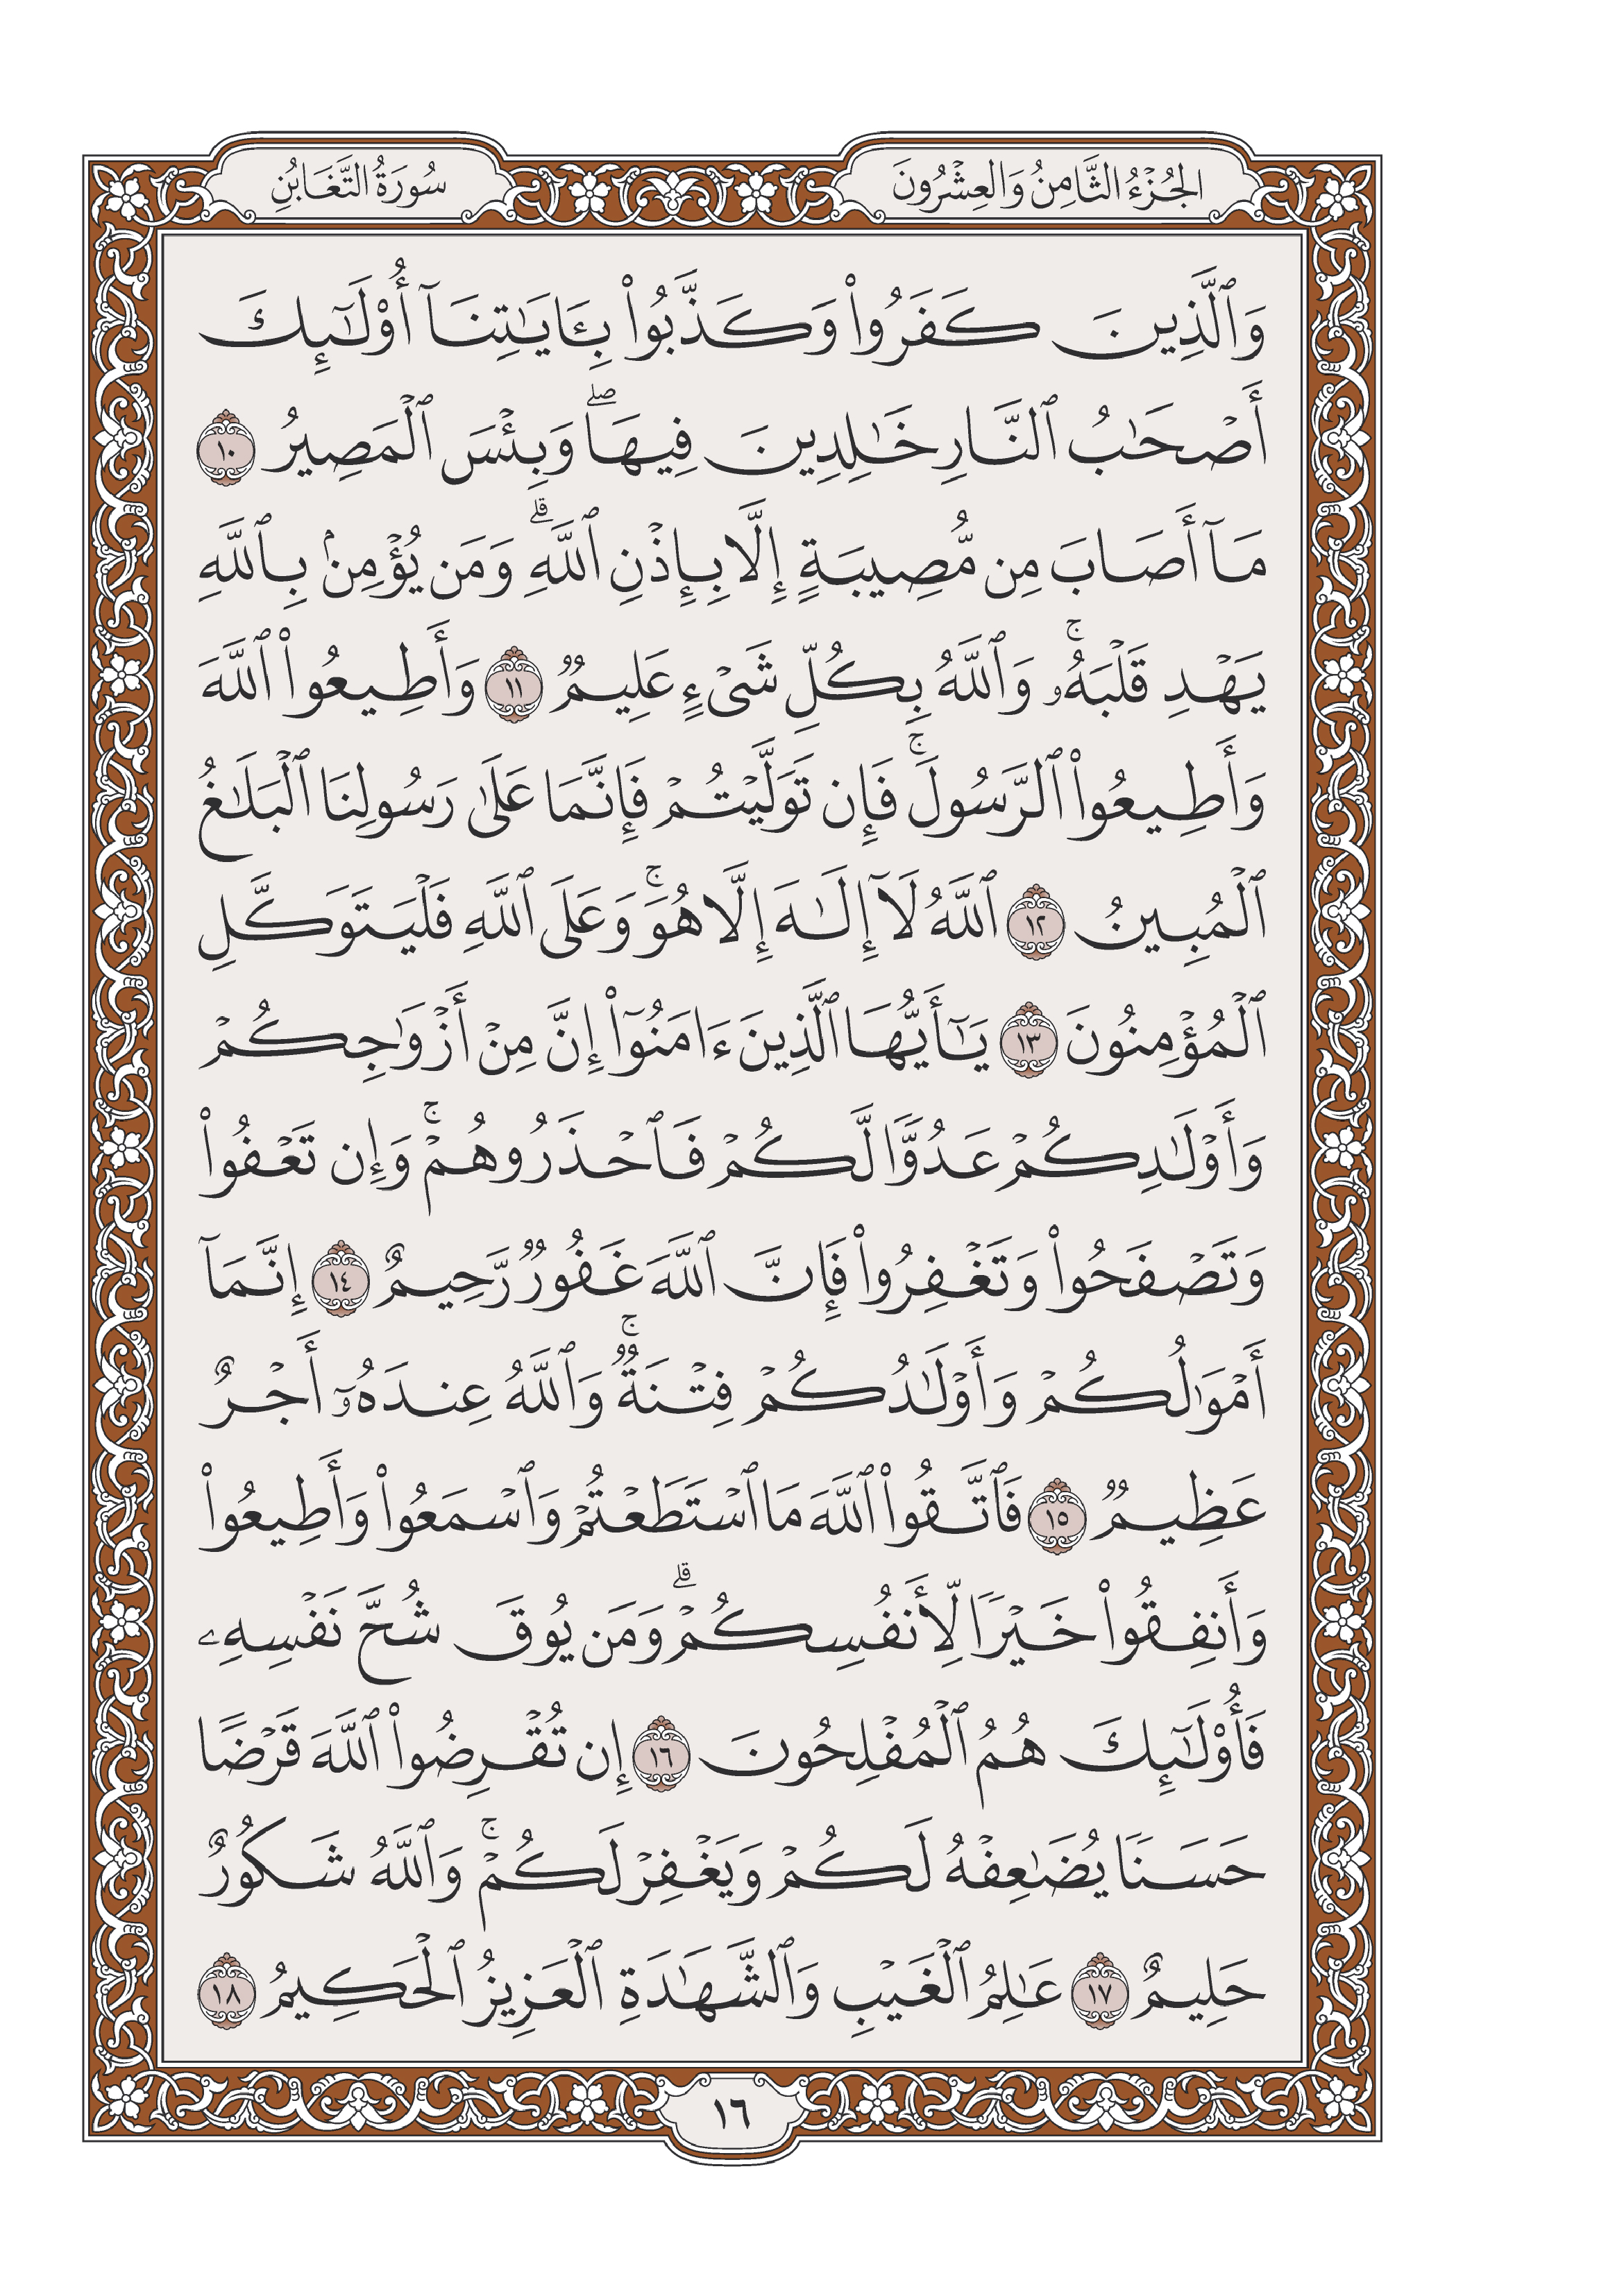 الجُزْءُ الثَّامِنُ وَالعِشْرُونَ
سُورَةُ التَّغَابُنِ
وَٱلَّذِينَ كَفَرُواْ وَكَذَّبُواْ بِـَٔايَـٰتِنَآ أُوْلَـٰٓئِكَ
أَصْحَـٰبُ ٱلنَّارِ خَـٰلِدِينَ فِيهَاۖ وَبِئْسَ ٱلْمَصِيرُ ١٠
مَآ أَصَابَ مِن مُّصِيبَةٍ إِلَّا بِإِذْنِ ٱللَّهِۗ وَمَن يُؤْمِنۢ بِٱللَّهِ
يَهْدِ قَلْبَهُۥۚ وَٱللَّهُ بِكُلِّ شَىْءٍ عَلِيمٌ ١١ وَأَطِيعُواْ ٱللَّهَ
وَأَطِيعُواْ ٱلرَّسُولَۚ فَإِن تَوَلَّيْتُمْ فَإِنَّمَا عَلَىٰ رَسُولِنَا ٱلْبَلَـٰغُ
ٱلْمُبِينُ ١٢ ٱللَّهُ لَآ إِلَـٰهَ إِلَّا هُوَۚ وَعَلَى ٱللَّهِ فَلْيَتَوَكَّلِ
ٱلْمُؤْمِنُونَ ١٣ يَـٰٓأَيُّهَا ٱلَّذِينَ ءَامَنُوٓاْ إِنَّ مِنْ أَزْوَٰجِكُمْ
وَأَوْلَـٰدِكُمْ عَدُوًّا لَّكُمْ فَٱحْذَرُوهُمْۚ وَإِن تَعْفُواْ
وَتَصْفَحُواْ وَتَغْفِرُواْ فَإِنَّ ٱللَّهَ غَفُورٌ رَّحِيمٌ ١٤ إِنَّمَآ
أَمْوَٰلُكُمْ وَأَوْلَـٰدُكُمْ فِتْنَةٌۚ وَٱللَّهُ عِندَهُۥٓ أَجْرٌ
عَظِيمٌ ١٥ فَٱتَّقُواْ ٱللَّهَ مَا ٱسْتَطَعْتُمْ وَٱسْمَعُواْ وَأَطِيعُواْ
وَأَنفِقُواْ خَيْرًا لِّأَنفُسِكُمْۗ وَمَن يُوقَ شُحَّ نَفْسِهِۦ
فَأُوْلَـٰٓئِكَ هُمُ ٱلْمُفْلِحُونَ ١٦ إِن تُقْرِضُواْ ٱللَّهَ قَرْضًا
حَسَنًا يُضَـٰعِفْهُ لَكُمْ وَيَغْفِرْ لَكُمْۚ وَٱللَّهُ شَكُورٌ
حَلِيمٌ ١٧ عَـٰلِمُ ٱلْغَيْبِ وَٱلشَّهَـٰدَةِ ٱلْعَزِيزُ ٱلْحَكِيمُ ١٨
١٦